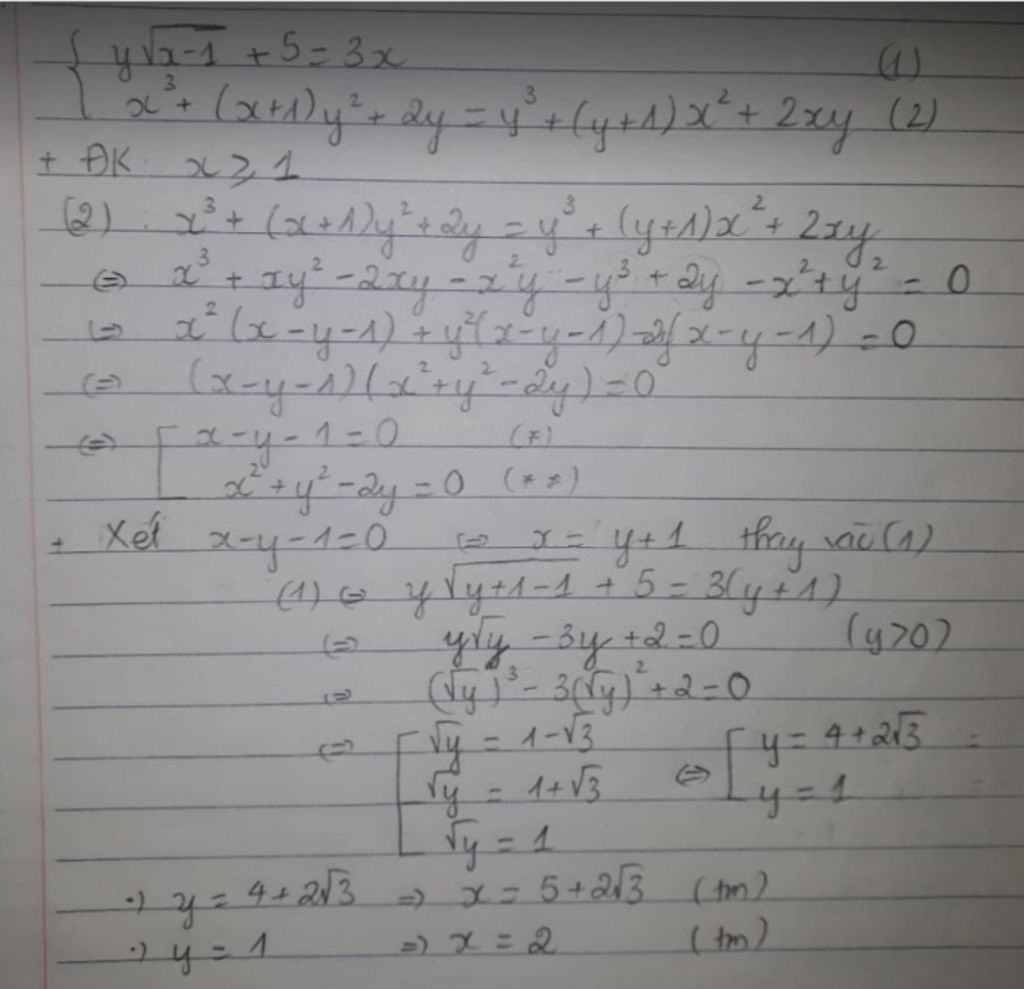 { y√(x-1) + 5 = 3x (1)
x³ + (x+1)y² + 2y = y³ + (y+1)x² + 2xy (2)
+ ĐK: x ⩾ 1
(2): x³ + (x+1)y² + 2y = y³ + (y+1)x² + 2xy
⇔ x³ + xy² - 2xy - x²y - y³ + 2y - x² + y² = 0
⇔ x²(x-y-1) + y²(x-y-1) - 2y(x-y-1) = 0
⇔ (x-y-1)(x² + y² - 2y) = 0
⇔ [ x-y-1 = 0 (*)
x² + y² - 2y = 0 (**)
+ Xét x-y-1=0 ⇔ x = y+1 thay vào (1)
(1) ⇔ y√(y+1-1) + 5 = 3(y+1)
⇔ y√y - 3y + 2 = 0 (y>0)
⇔ (√y)³ - 3(√y)² + 2 = 0
⇔ [ √y = 1-√3
√y = 1+√3
√y = 1 ⇔ [ y = 4+2√3 =
y = 1
·) y = 4+2√3 ⇒ x = 5+2√3 (tm)
·) y = 1 ⇒ x = 2 (tm)